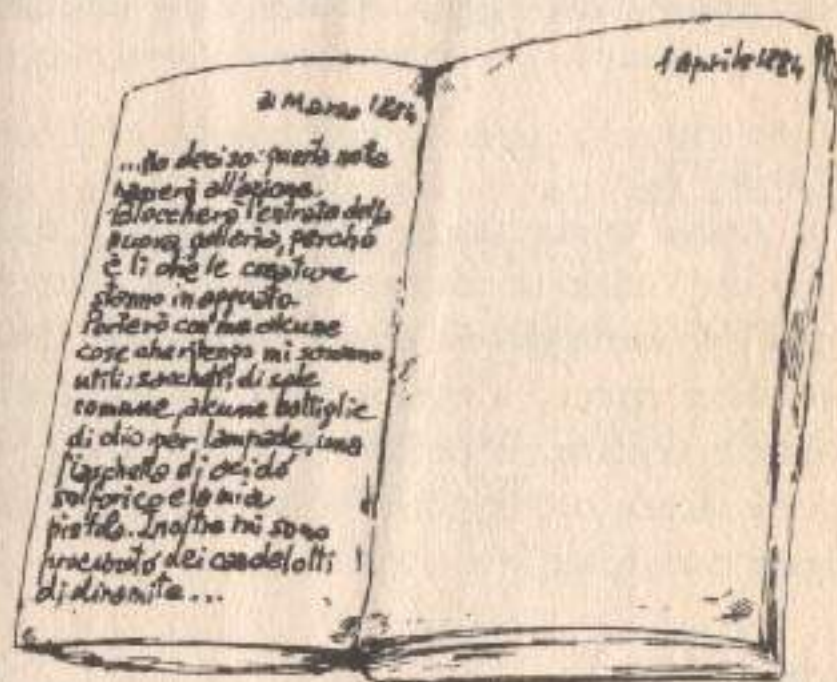 31 Marzo 1884
...Ho deciso: questa notte
passerò all'azione
Bloccherò l'entrata della
nuova galleria, perché
è lì che le creature
stanno in agguato
Porterò con me alcune
cose che ritengo mi saranno
utili: sacchetti di sale
comune, alcune bottiglie
di olio per lampade, una
fiaschetta di acido
solforico e la mia
pistola. Inoltre mi sono
procurato dei candelotti
di dinamite...
1 Aprile 1884